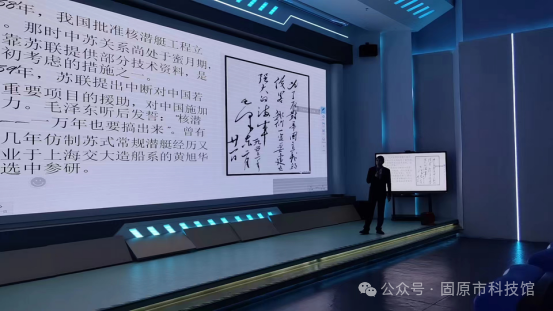 58年，我国批准核潜艇工程立
。那时中苏关系尚处于蜜月期，
靠苏联提供部分技术资料，是
初考虑的措施之一。
59年，苏联提出中断对中国若
重要项目的援助，对中国施加
力。毛泽东听后发誓：“核潜
一万年也要搞出来”。曾有
几年仿制苏式常规潜艇经历又
业于上海交大造船系的黄旭华
选中参研。
为了反对帝国主义的
侵略，我们一定要建立
强大的海军
毛泽东
公众号·固原市科技馆